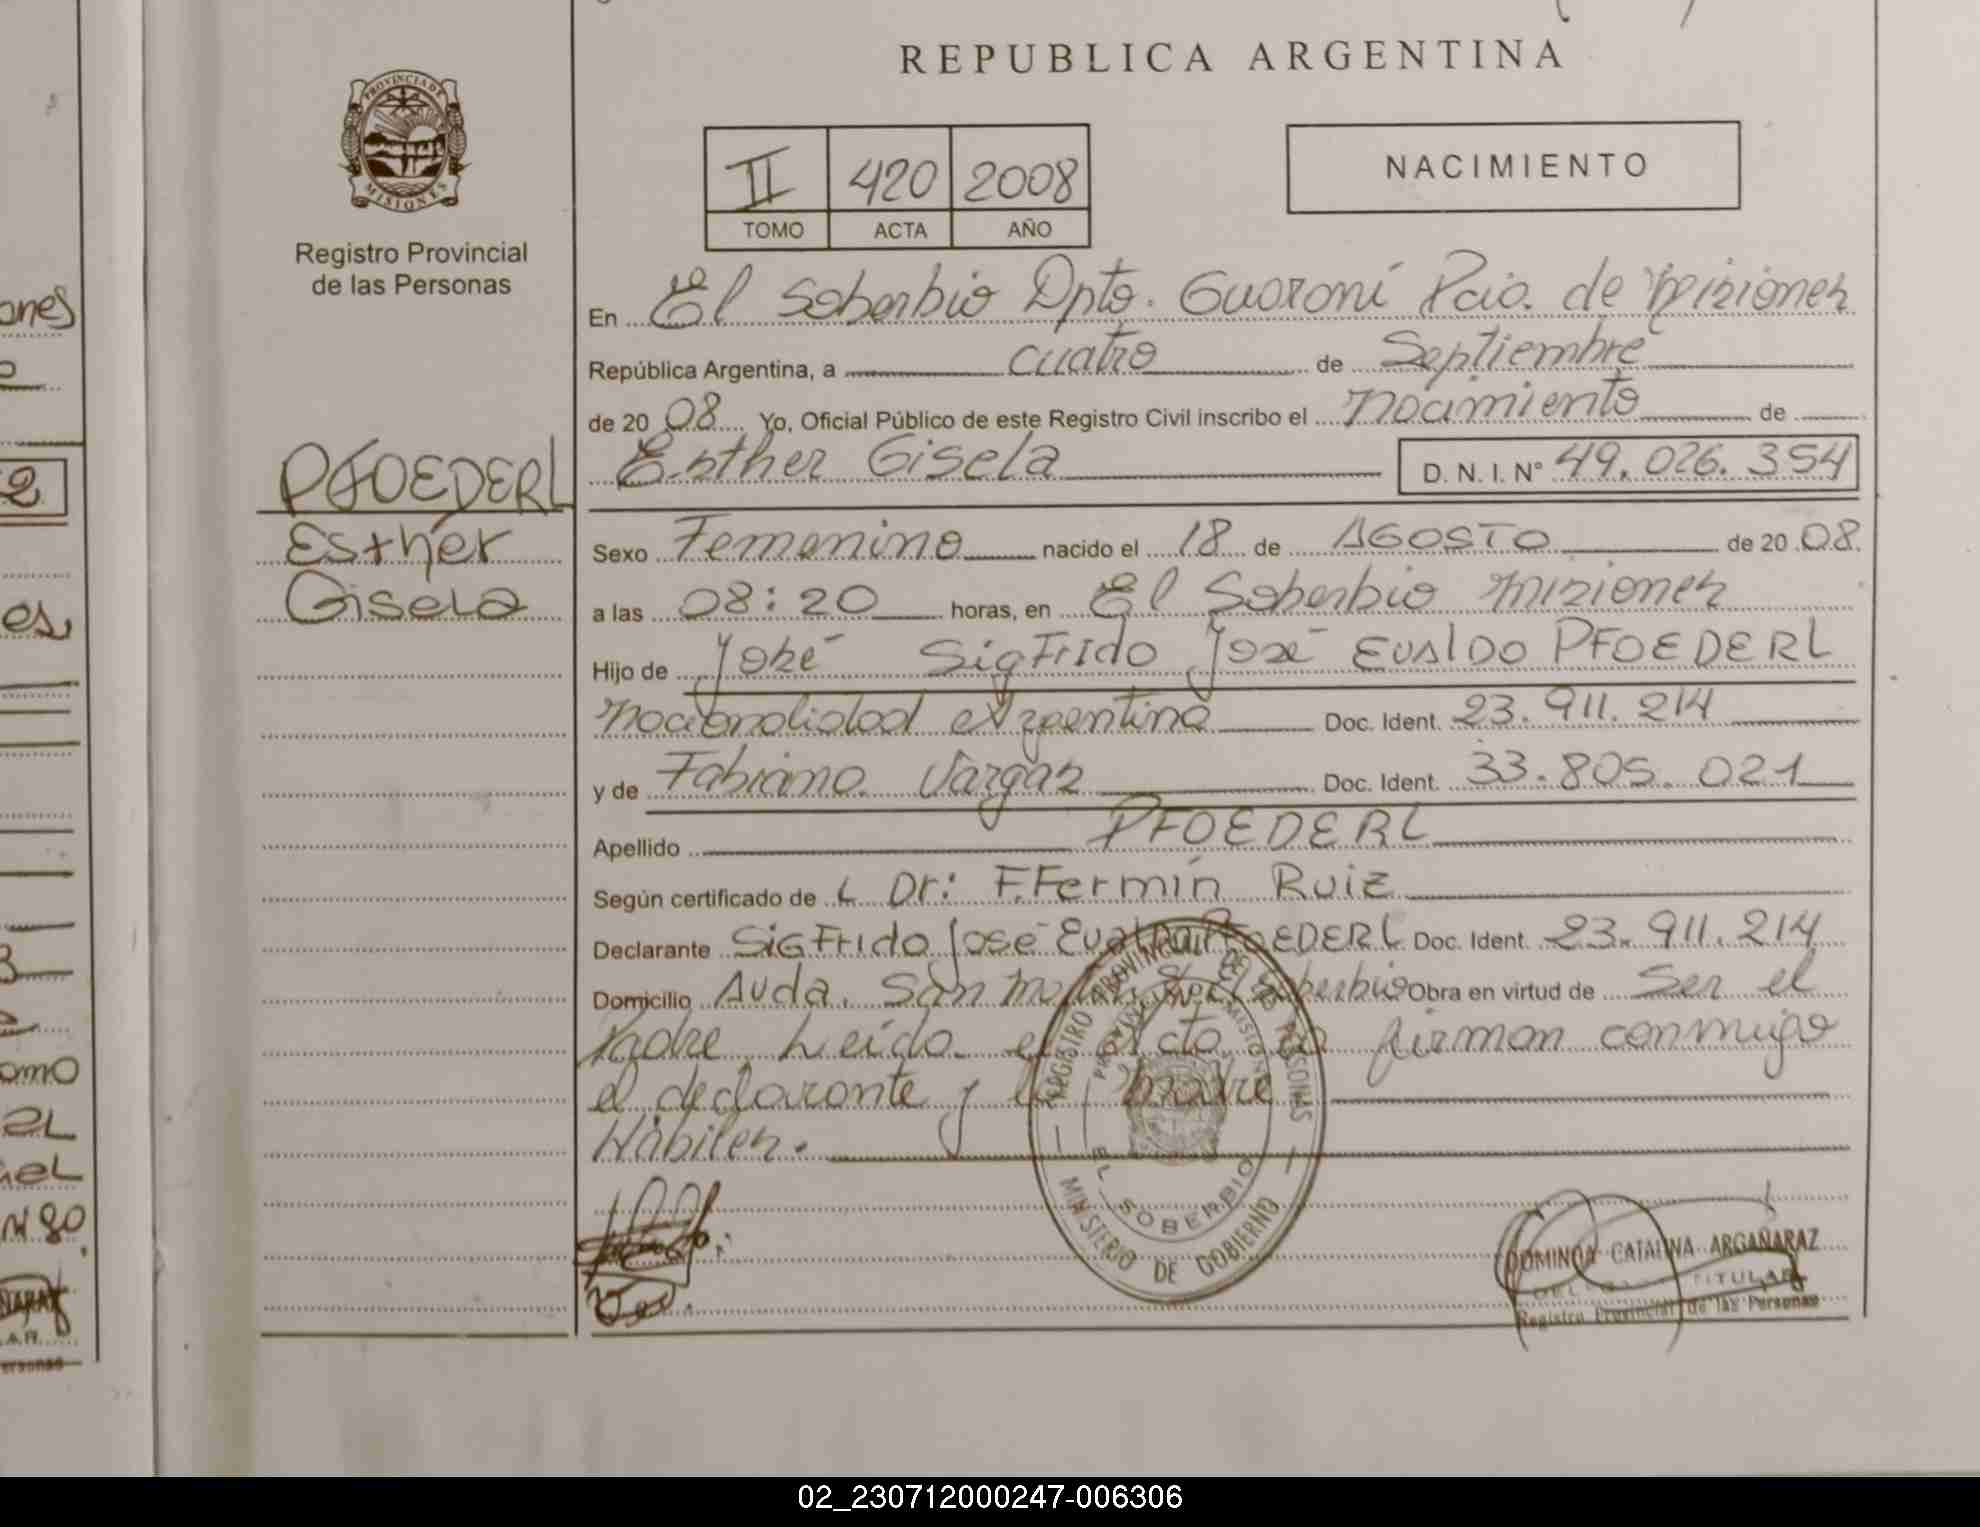 REPUBLICA ARGENTINA
PROVINCIA DE
MISIONES
Registro Provincial
de las Personas
II 420 2008
TOMO ACTA AÑO
NACIMIENTO
En El Soberbio Dpto. Guaraní Pcia. de Misiones
República Argentina, a cuatro de Septiembre
de 20 08 Yo, Oficial Público de este Registro Civil inscribo el Nacimiento de
Esther Gisela D. N. I. N° 49.026.354
PFOEDERL
Esther
Gisela
Sexo Femenino nacido el 18 de AGOSTO de 20 08.
a las 08:20 horas, en El Soberbio Misiones
Hijo de José Sigfrido José Evaldo PFOEDERL
Nacionalidad Argentina Doc. Ident. 23.911.214
y de Fabiana Vargas Doc. Ident. 33.805.021
Apellido PFOEDERL
Según certificado de L Dr: F.Fermín Ruiz
Declarante Sigfrido José Evaldo PFOEDERL Doc. Ident. 23.911.214
Domicilio Avda. San El Soberbio Obra en virtud de Ser el
Padre. Leída el acta la firman conmigo
el declarante y la madre
Hábiles.
REGISTRO PROVINCIAL DE LAS PERSONAS
PROVINCIA DE MISIONES
EL SOBERBIO
MINISTERIO DE GOBIERNO
DOMINGA CATALINA ARGAÑARAZ
TITULAR
Registro Provincial de las Personas
ones
2
es,
omo
EL
N 80
ARAZ
ersonas
02_230712000247-006306